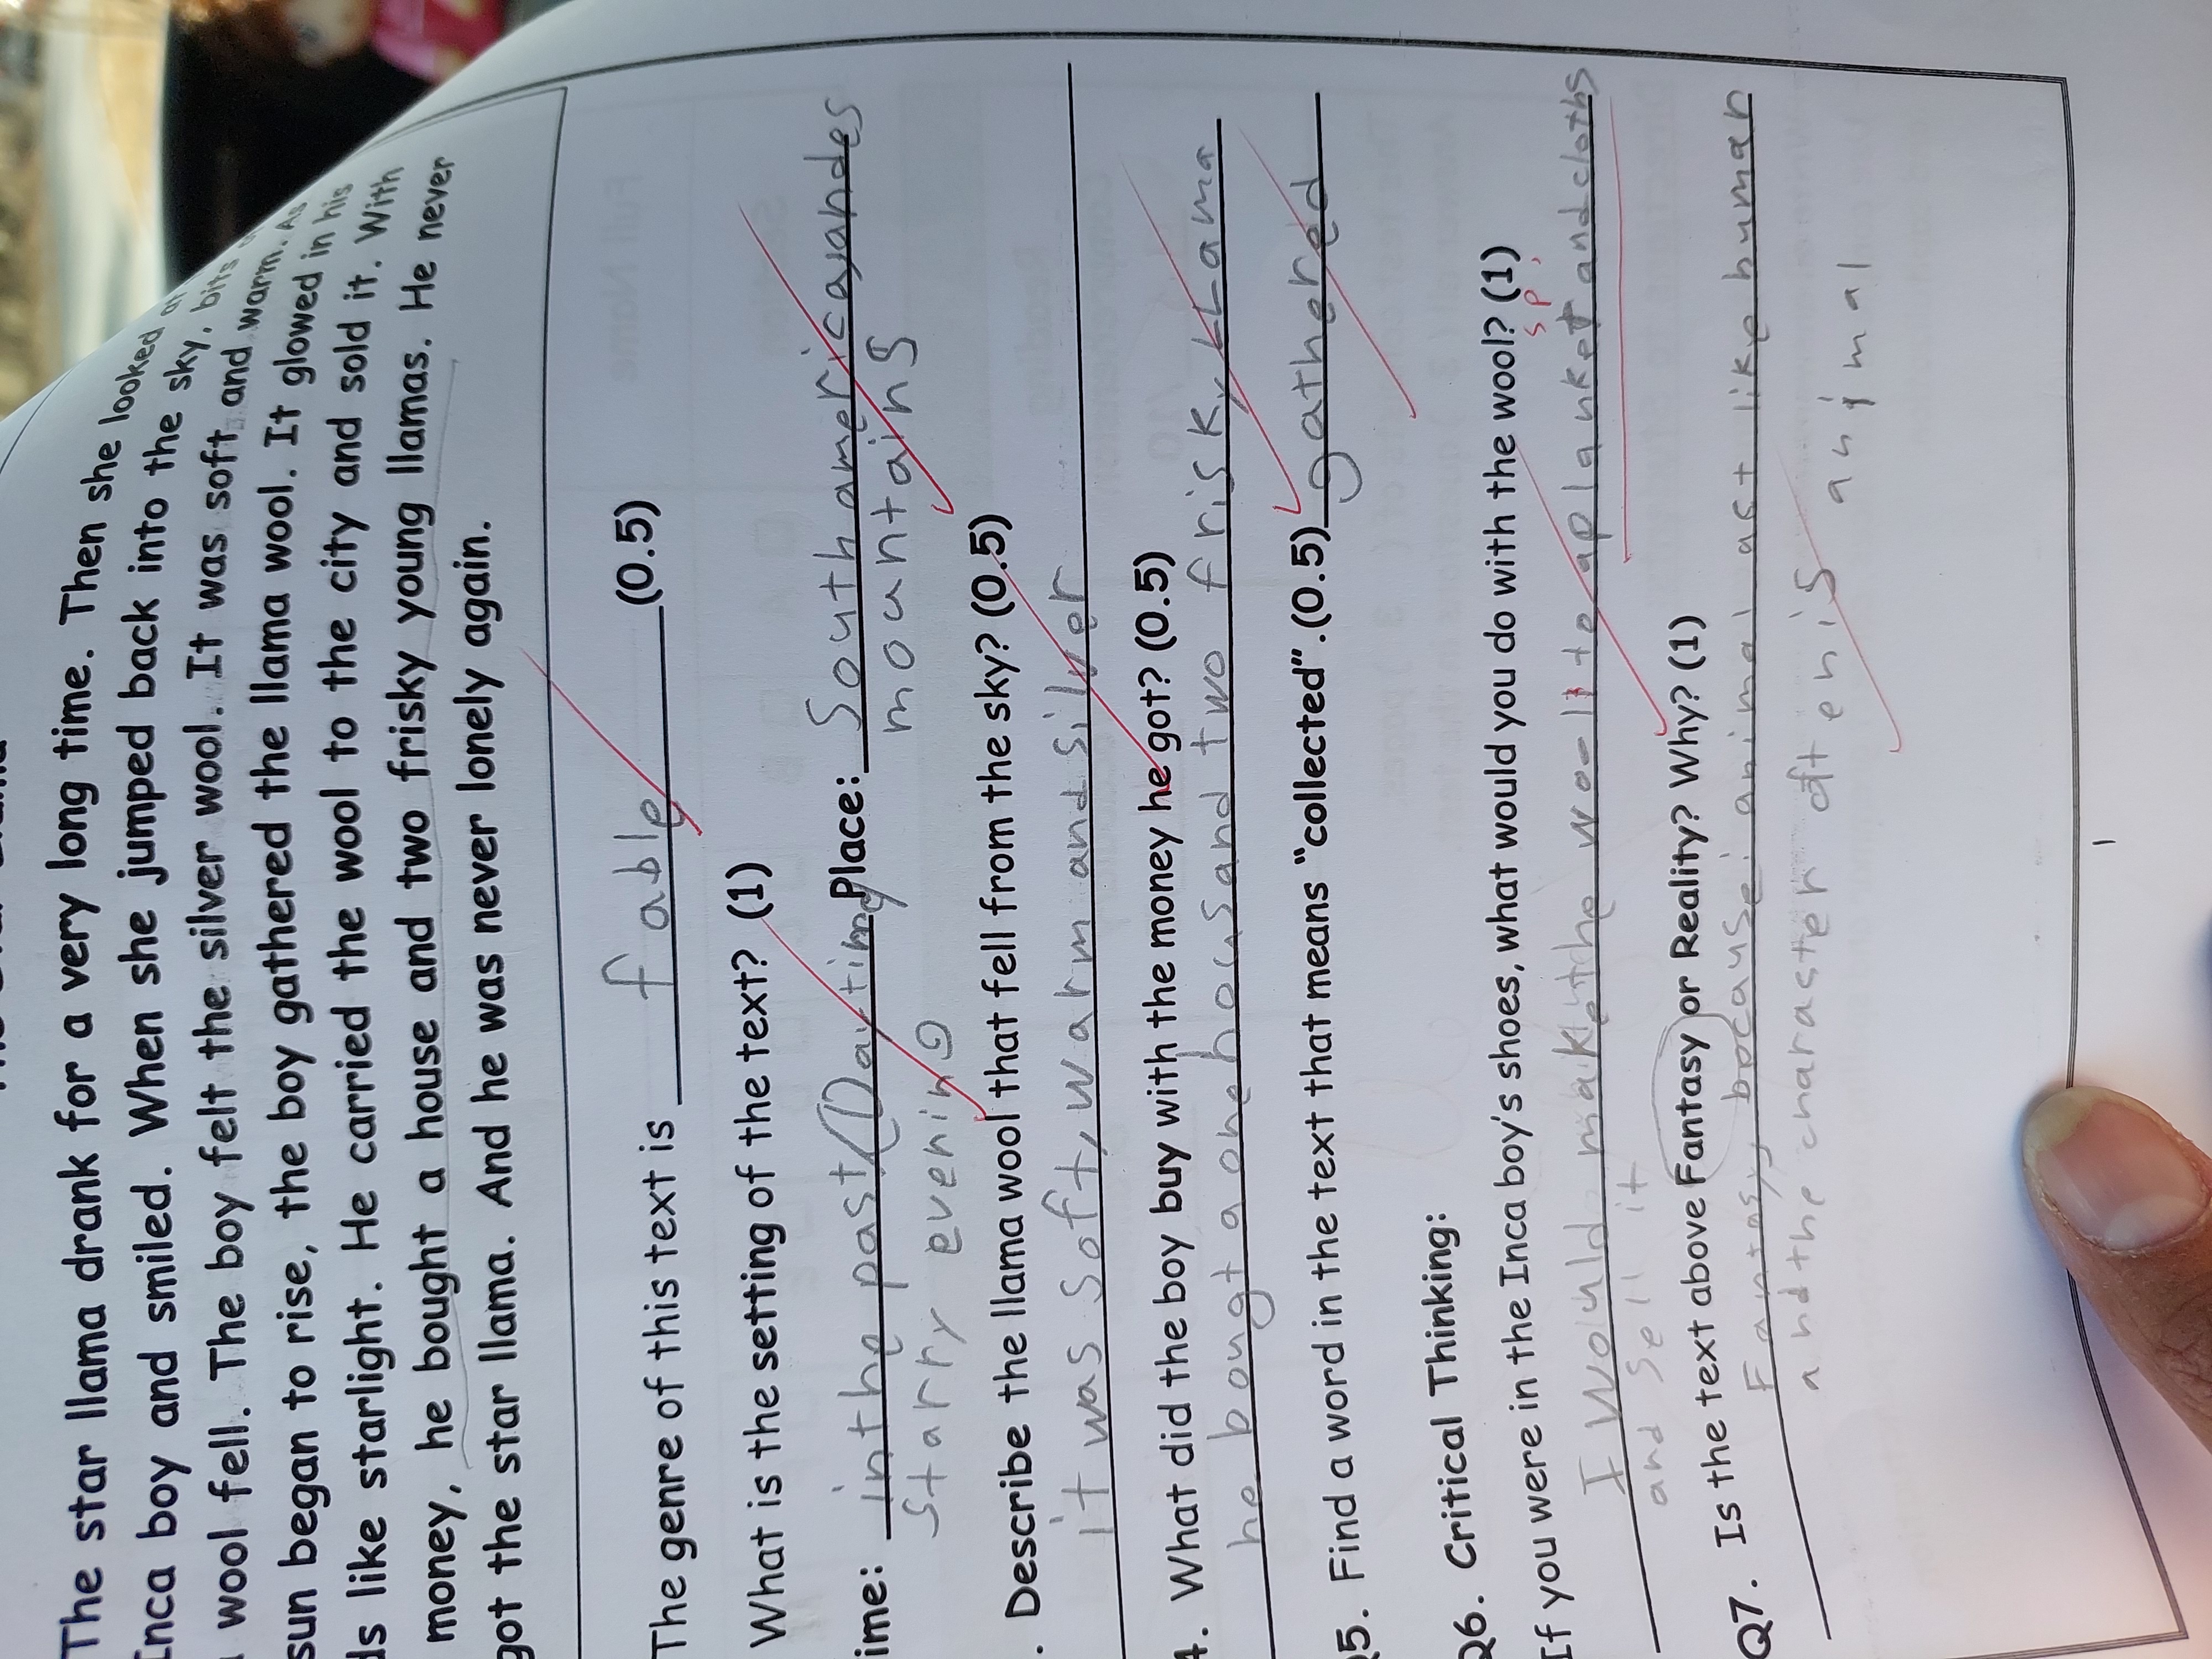 The star llama drank for a very long time. Then she looked at
Inca boy and smiled. When she jumped back into the sky, bits
wool fell. The boy felt the silver wool. It was soft and warm. As
sun began to rise, the boy gathered the llama wool. It glowed in his
ds like starlight. He carried the wool to the city and sold it. With
money, he bought a house and two frisky young llamas. He never
got the star llama. And he was never lonely again.
The genre of this text is fable (0.5)
What is the setting of the text? (1)
ime: in the past/(Daytime) Place: South america, andes
starry evening mountains
. Describe the llama wool that fell from the sky? (0.5)
it was soft, warm and silver
4. What did the boy buy with the money he got? (0.5)
he bought a one house and two frisky Lama
Q5. Find a word in the text that means "collected".(0.5) gathered
Q6. Critical Thinking:
If you were in the Inca boy's shoes, what would you do with the wool? (1)
sp.
I would make the wool to a planket and cloths
and sell it
Q7. Is the text above Fantasy or Reality? Why? (1)
Fantasy, because animal act like human
and the character often is animal
1